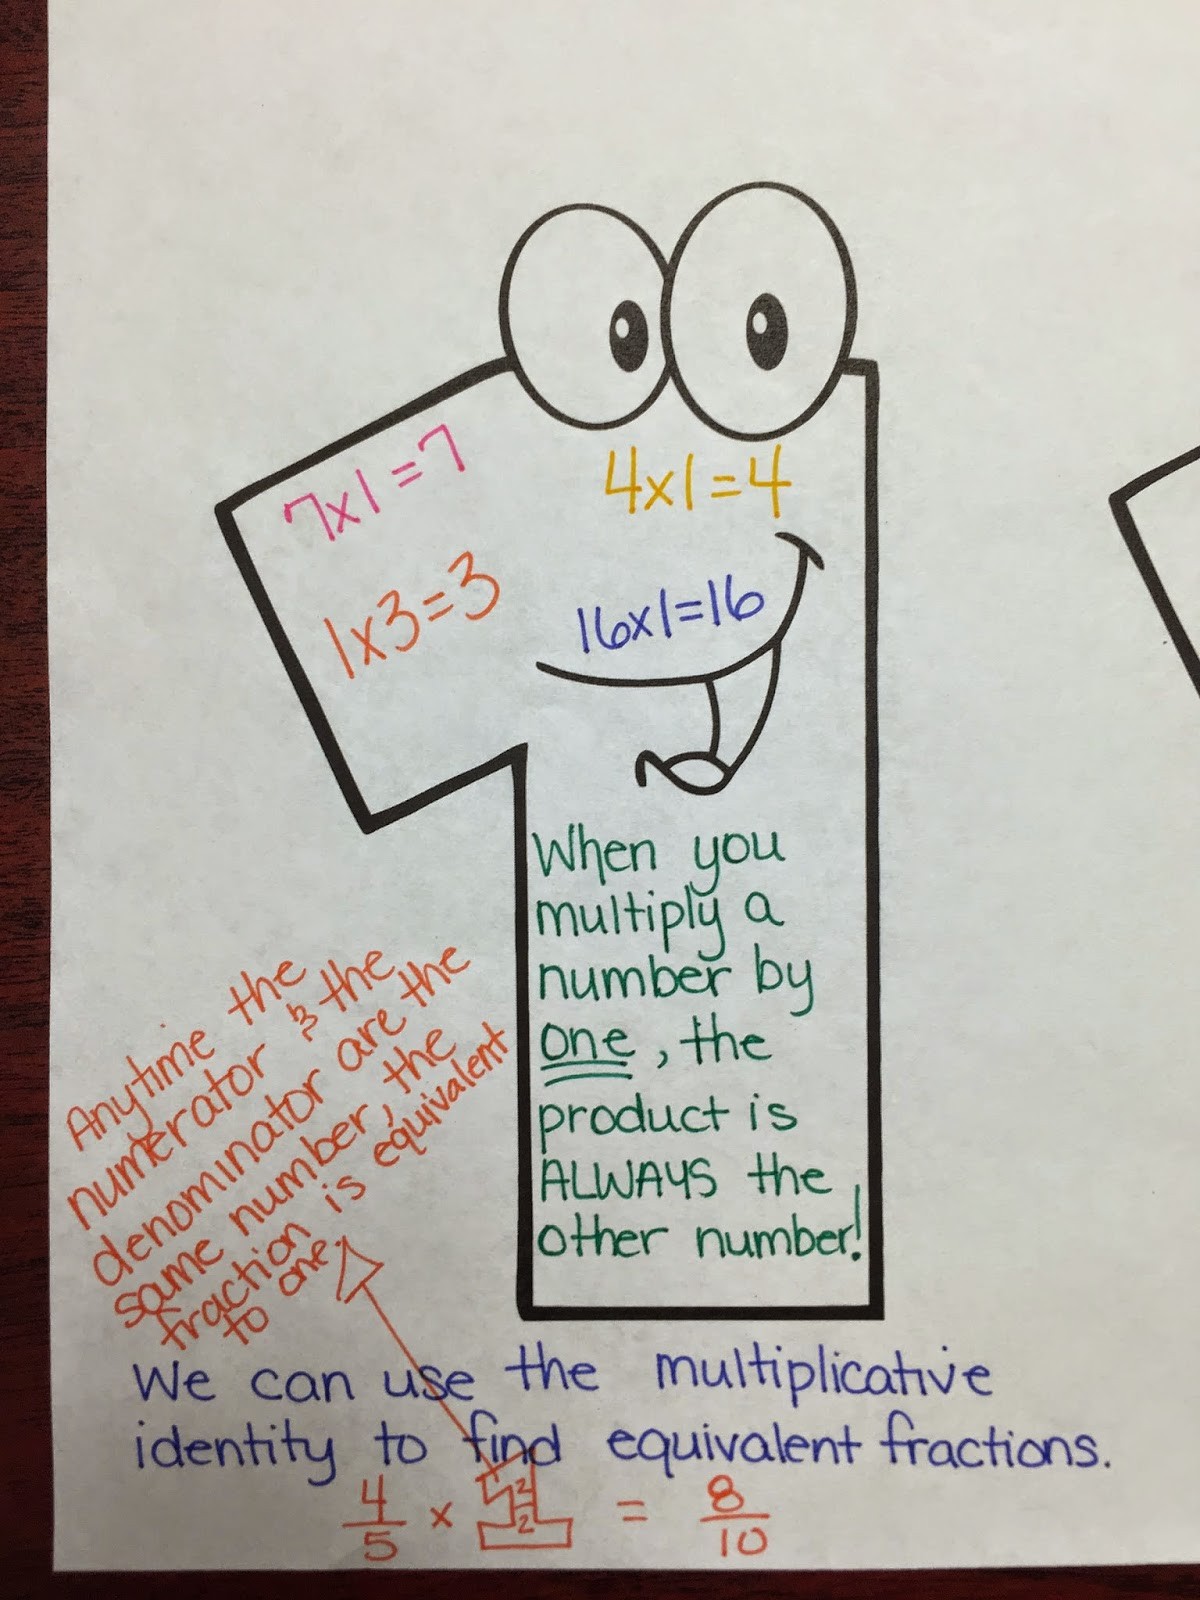 7x1=7
4x1=4
1x3=3
16x1=16
When you
multiply a
number by
one, the
product is
ALWAYS the
other number!
Anytime the
numerator & the
denominator are the
same number, the
fraction is equivalent
to one.
We can use the multiplicative
identity to find equivalent fractions.
4/5 x 2/2 = 8/10